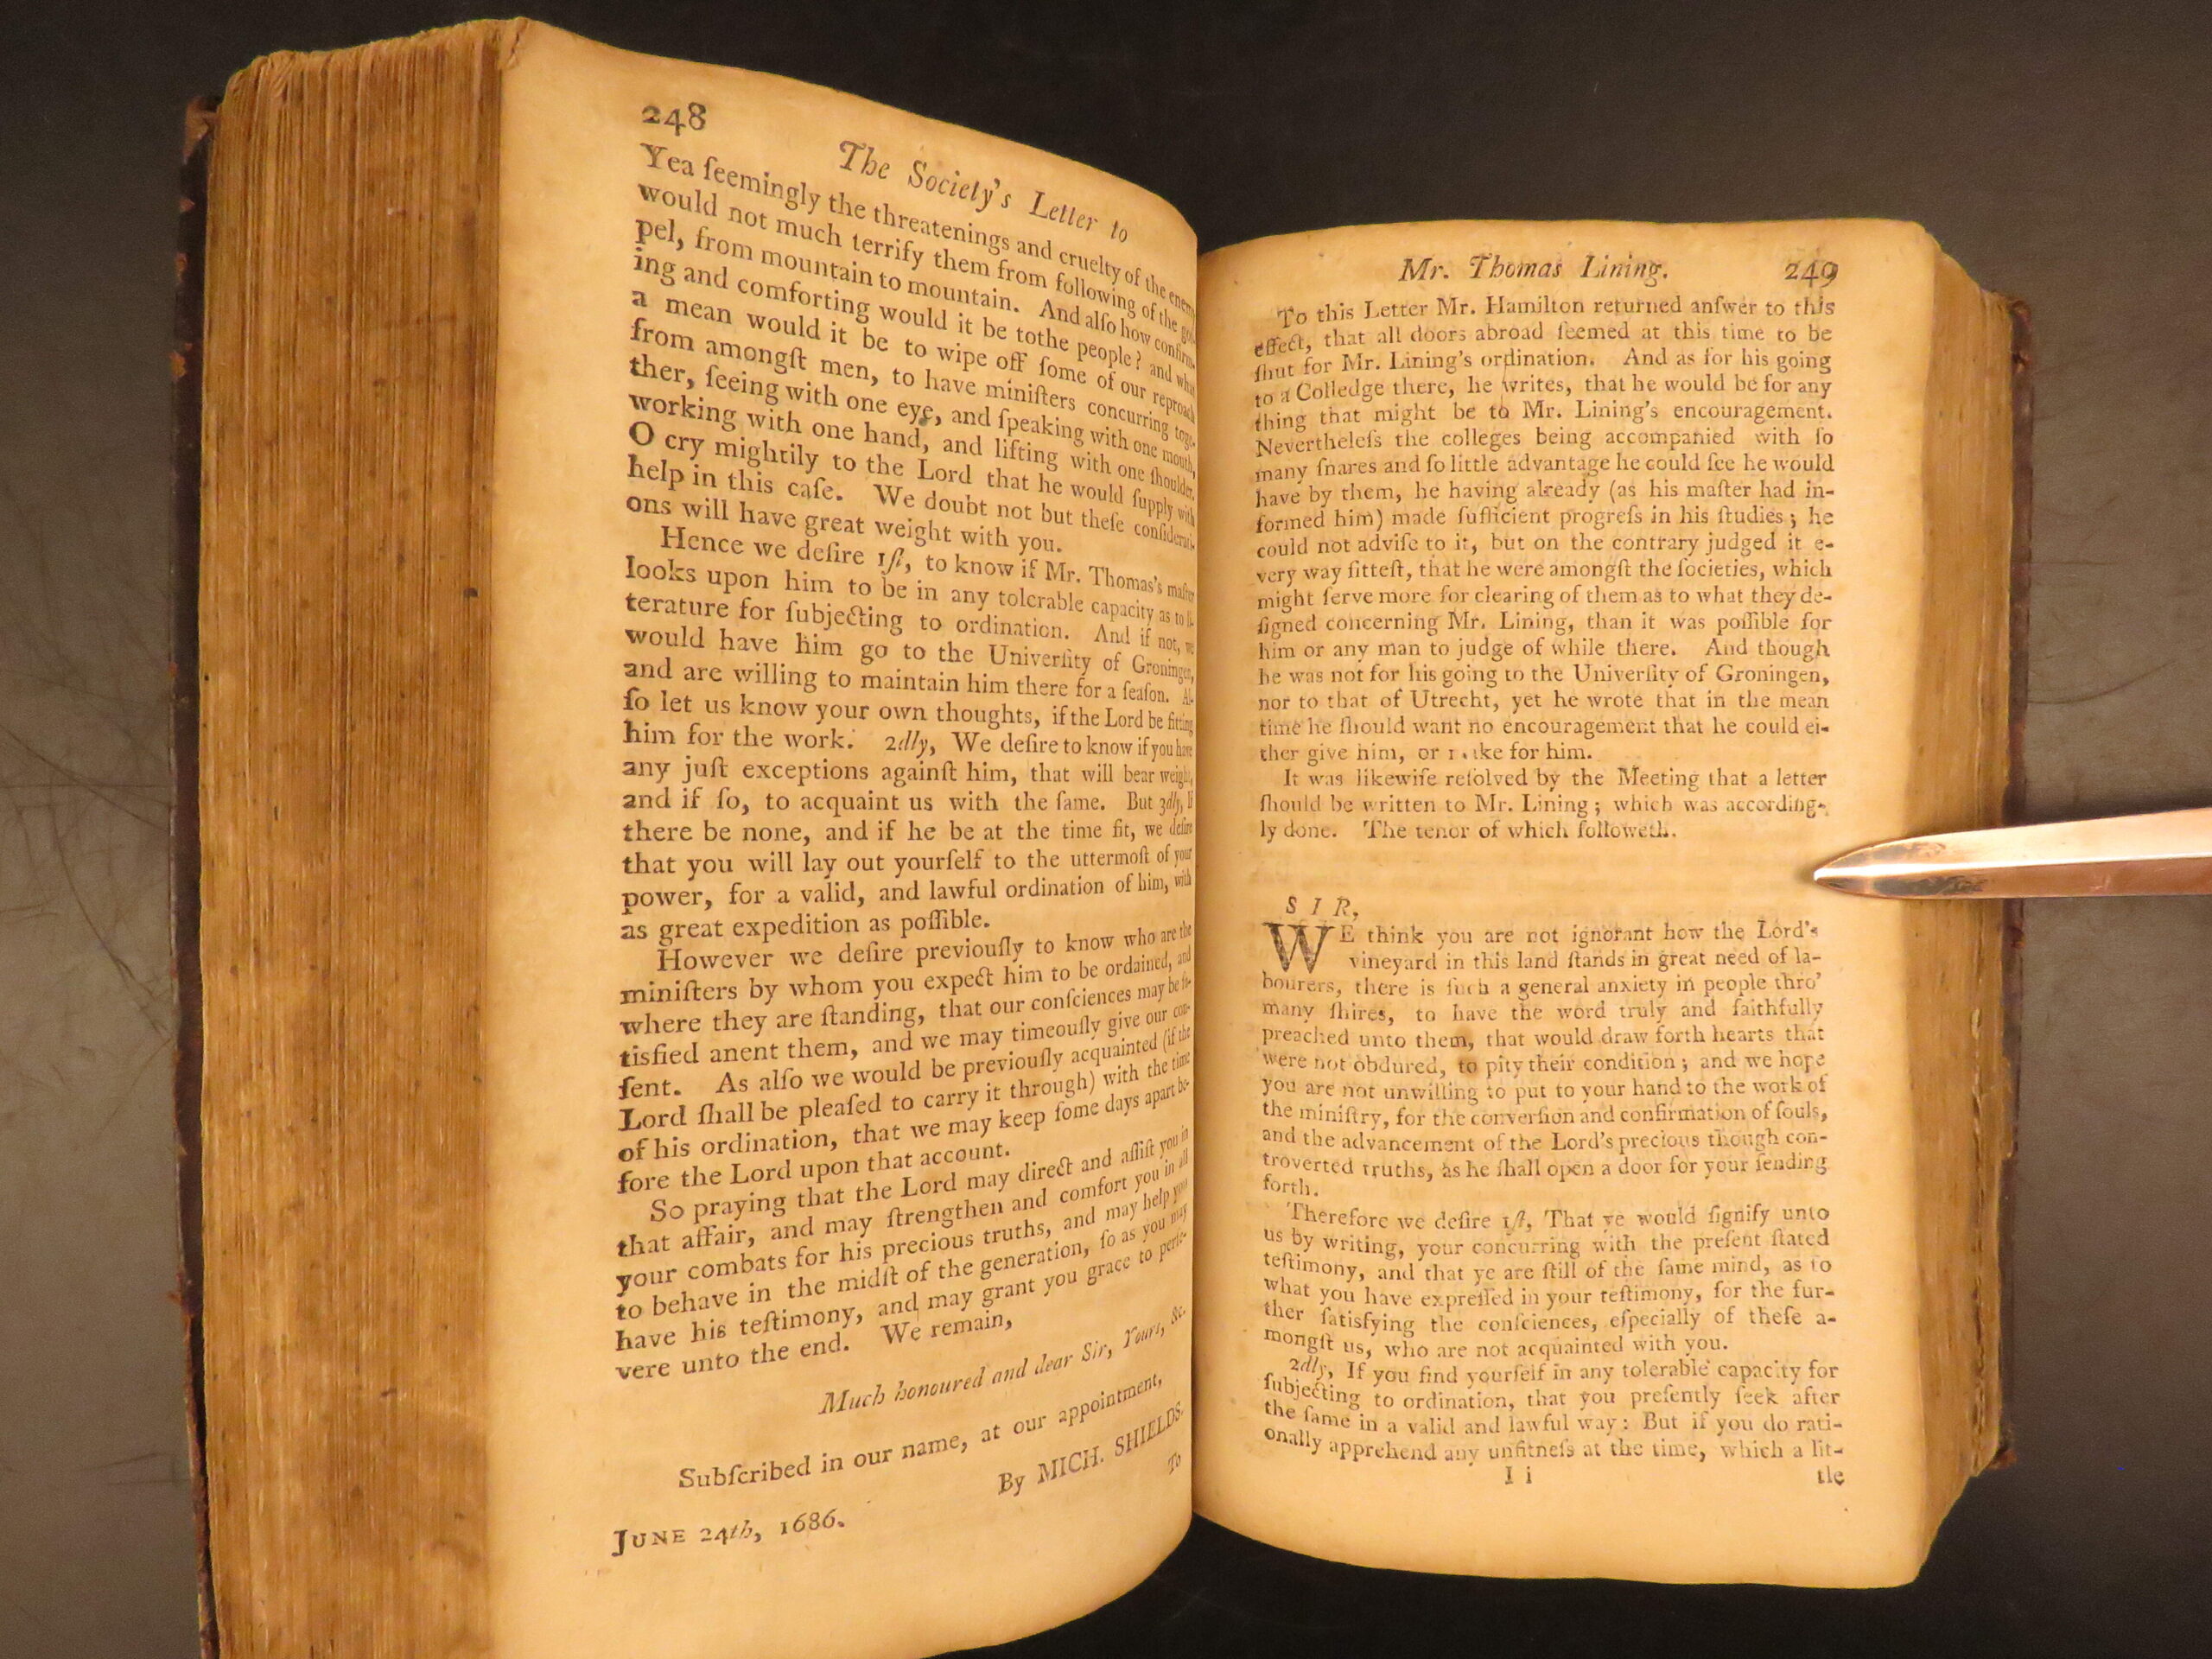 248
The Society's Letter to
Yea ſeemingly the threatenings and cruelty of the enemy
would not much terrify them from following of the goſ-
pel, from mountain to mountain. And alſo how confirm-
ing and comforting would it be tothe people? and what
a mean would it be to wipe off ſome of our reproach
from amongſt men, to have miniſters concurring toge-
ther, ſeeing with one eye, and ſpeaking with one mouth,
working with one hand, and lifting with one ſhoulder.
O cry mightily to the Lord that he would ſupply with
help in this caſe. We doubt not but theſe conſiderati-
ons will have great weight with you.
Hence we deſire 1ſt, to know if Mr. Thomas's maſter
looks upon him to be in any tolerable capacity as to li-
terature for ſubjecting to ordination. And if not, we
would have him go to the Univerſity of Groningen,
and are willing to maintain him there for a ſeaſon. Al-
ſo let us know your own thoughts, if the Lord be fitting
him for the work. 2dly, We deſire to know if you have
any juſt exceptions againſt him, that will bear weight,
and if ſo, to acquaint us with the ſame. But 3dly, If
there be none, and if he be at the time fit, we deſire
that you will lay out yourſelf to the uttermoſt of your
power, for a valid, and lawful ordination of him, with
as great expedition as poſſible.
However we deſire previouſly to know who are the
miniſters by whom you expect him to be ordained, and
where they are ſtanding, that our conſciences may be ſa-
tisfied anent them, and we may timeouſly give our con-
ſent. As alſo we would be previouſly acquainted (if the
Lord ſhall be pleaſed to carry it through) with the time
of his ordination, that we may keep ſome days apart be-
fore the Lord upon that account.
So praying that the Lord may direct and aſſiſt you in
that affair, and may ſtrengthen and comfort you in all
your combats for his precious truths, and may help you
to behave in the midſt of the generation, ſo as you may
have his teſtimony, and may grant you grace to perſe-
vere unto the end. We remain,
Much honoured and dear Sir, Yours, &c.
Subſcribed in our name, at our appointment,
By MICH. SHIELDS.
JUNE 24th, 1686.
To
Mr. Thomas Lining. 249
To this Letter Mr. Hamilton returned anſwer to this
effect, that all doors abroad ſeemed at this time to be
ſhut for Mr. Lining's ordination. And as for his going
to a Colledge there, he writes, that he would be for any
thing that might be to Mr. Lining's encouragement.
Nevertheleſs the colleges being accompanied with ſo
many ſnares and ſo little advantage he could ſee he would
have by them, he having already (as his maſter had in-
formed him) made ſufficient progreſs in his ſtudies; he
could not adviſe to it, but on the contrary judged it e-
very way fitteſt, that he were amongſt the ſocieties, which
might ſerve more for clearing of them as to what they de-
ſigned concerning Mr. Lining, than it was poſſible for
him or any man to judge of while there. And though
he was not for his going to the Univerſity of Groningen,
nor to that of Utrecht, yet he wrote that in the mean
time he ſhould want no encouragement that he could ei-
ther give him, or for him.
It was likewiſe reſolved by the Meeting that a letter
ſhould be written to Mr. Lining; which was according-
ly done. The tenor of which followeth.
SIR,
WE think you are not ignorant how the Lord's
vineyard in this land ſtands in great need of la-
bourers, there is ſuch a general anxiety in people thro'
many ſhires, to have the word truly and faithfully
preached unto them, that would draw forth hearts that
were not obdured, to pity their condition; and we hope
you are not unwilling to put to your hand to the work of
the miniſtry, for the converſion and confirmation of ſouls,
and the advancement of the Lord's precious though con-
troverted truths, as he ſhall open a door for your ſending
forth.
Therefore we deſire 1ſt, That ye would ſignify unto
us by writing, your concurring with the preſent ſtated
teſtimony, and that ye are ſtill of the ſame mind, as to
what you have expreſſed in your teſtimony, for the fur-
ther ſatisfying the conſciences, eſpecially of theſe a-
mongſt us, who are not acquainted with you.
2dly, If you find yourſelf in any tolerable capacity for
ſubjecting to ordination, that you preſently ſeek after
the ſame in a valid and lawful way: But if you do rati-
onally apprehend any unfitneſs at the time, which a lit-
I i
tle